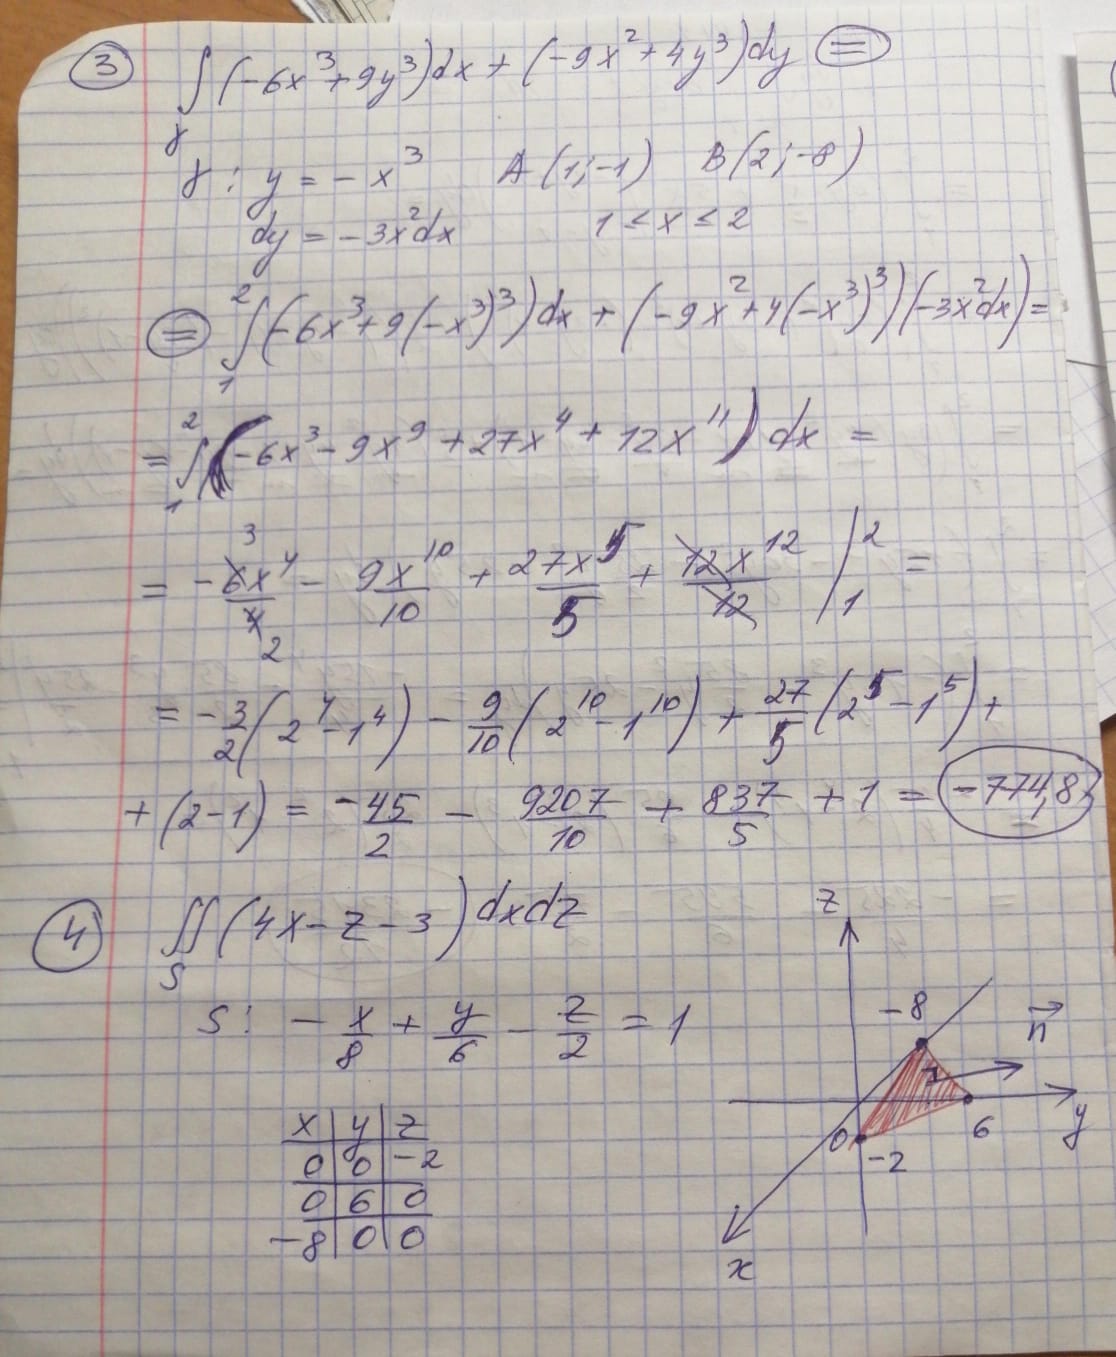 ③ ∫γ (-6x³+9y³)dx + (-9x²+4y³)dy ⊜
γ: y = -x³ A(1;-1) B(2;-8)
dy = -3x²dx 1 ≤ x ≤ 2
⊜ ∫₁² (-6x³+9(-x³)³)dx + (-9x²+4(-x³)³)(-3x²dx) =
= ∫₁² (-6x³-9x⁹+27x⁴+12x¹¹) dx =
= -6x⁴/4 - 9x¹⁰/10 + 27x⁵/5 + 12x¹²/12 |₁² =
3
2
= -3/2(2⁴-1⁴) - 9/10(2¹⁰-1¹⁰) + 27/5(2⁵-1⁵) +
+ (2-1) = -45/2 - 9207/10 + 837/5 + 1 = -774,8
④ ∬S (4x-z-3)dxdz
S: -x/8 + y/6 - z/2 = 1
x | y | z
0 | 0 | -2
0 | 6 | 0
-8 | 0 | 0
z
-8
n⃗
0
-2
6
y
x